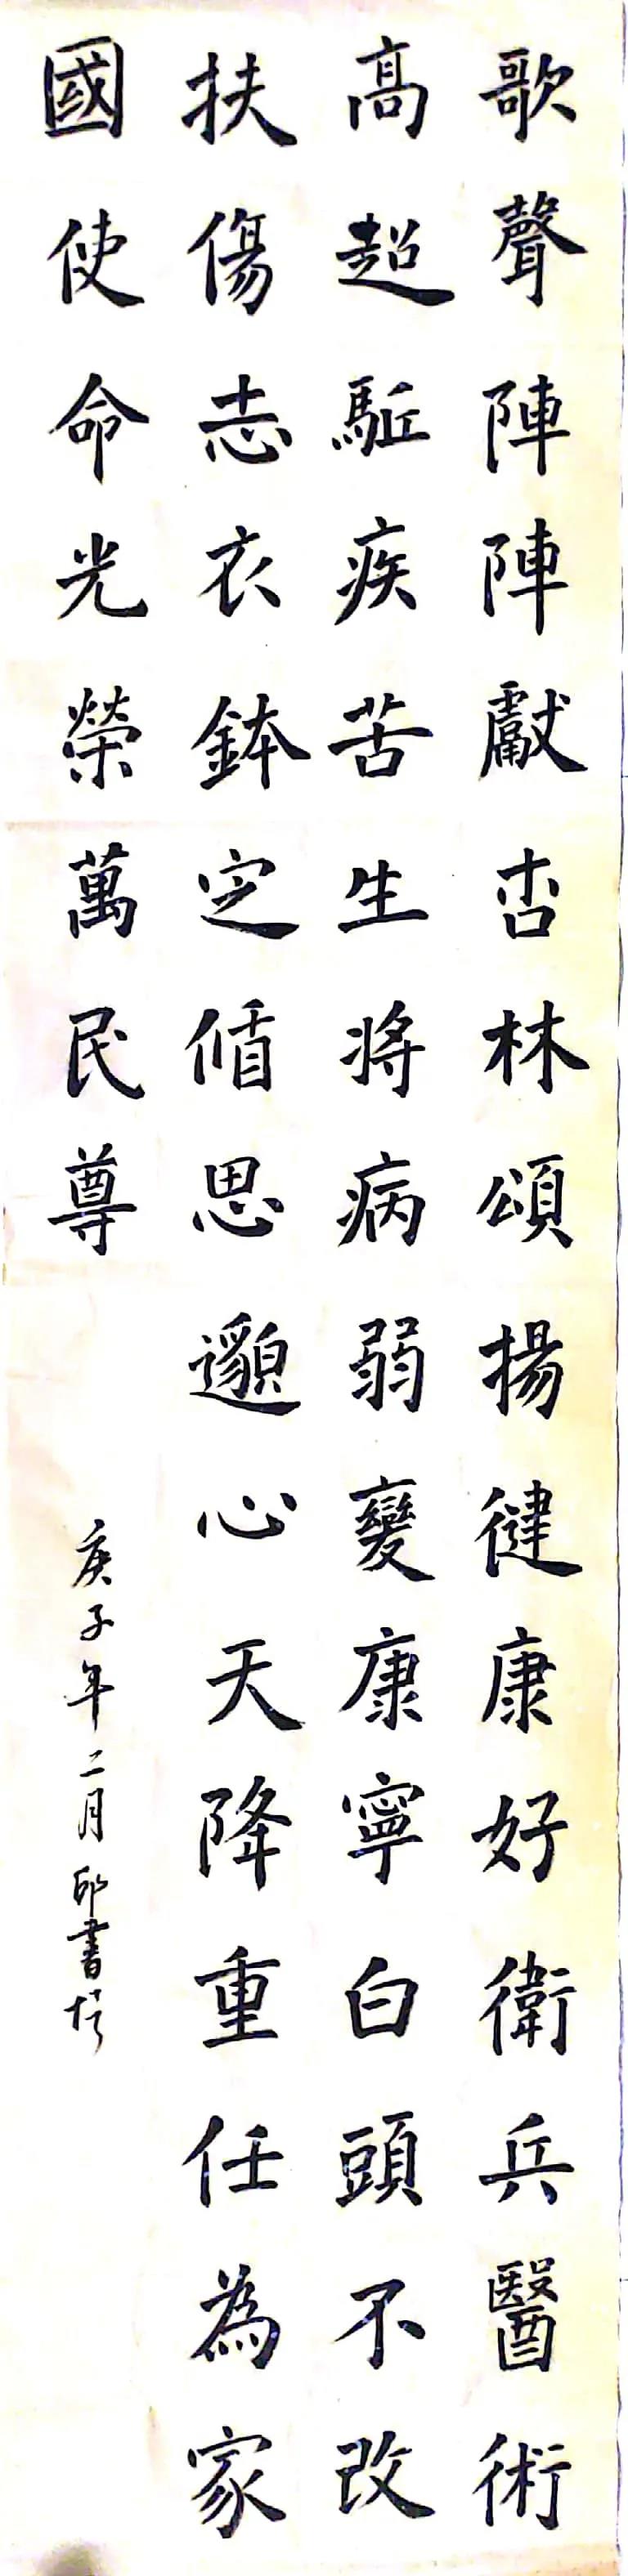 歌聲陣陣獻杏林頌揚健康好衛兵醫術
高超駈疾苦生將病弱變康寧白頭不改
扶傷志衣鉢定循思邈心天降重任為家
國使命光榮萬民尊
庚子年二月邱書